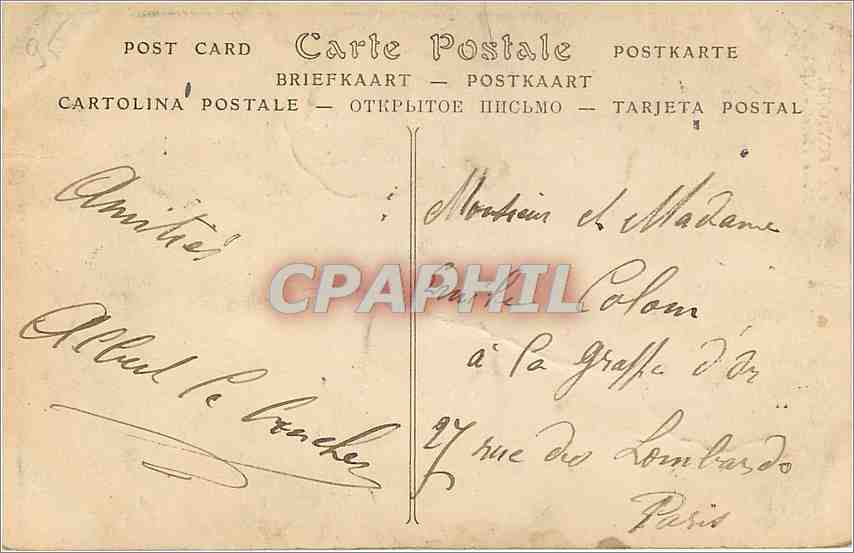 POST CARD Carte Postale POSTKARTE
BRIEFKAART — POSTKAART
CARTOLINA POSTALE — ОТКРЫТОЕ ПИСЬМО — TARJETA POSTAL
Amitiés
Albert le boucher
Monsieur et Madame
Colom
à la Grappe d'Or
27 rue des Lombards
Paris
CPAPHIL